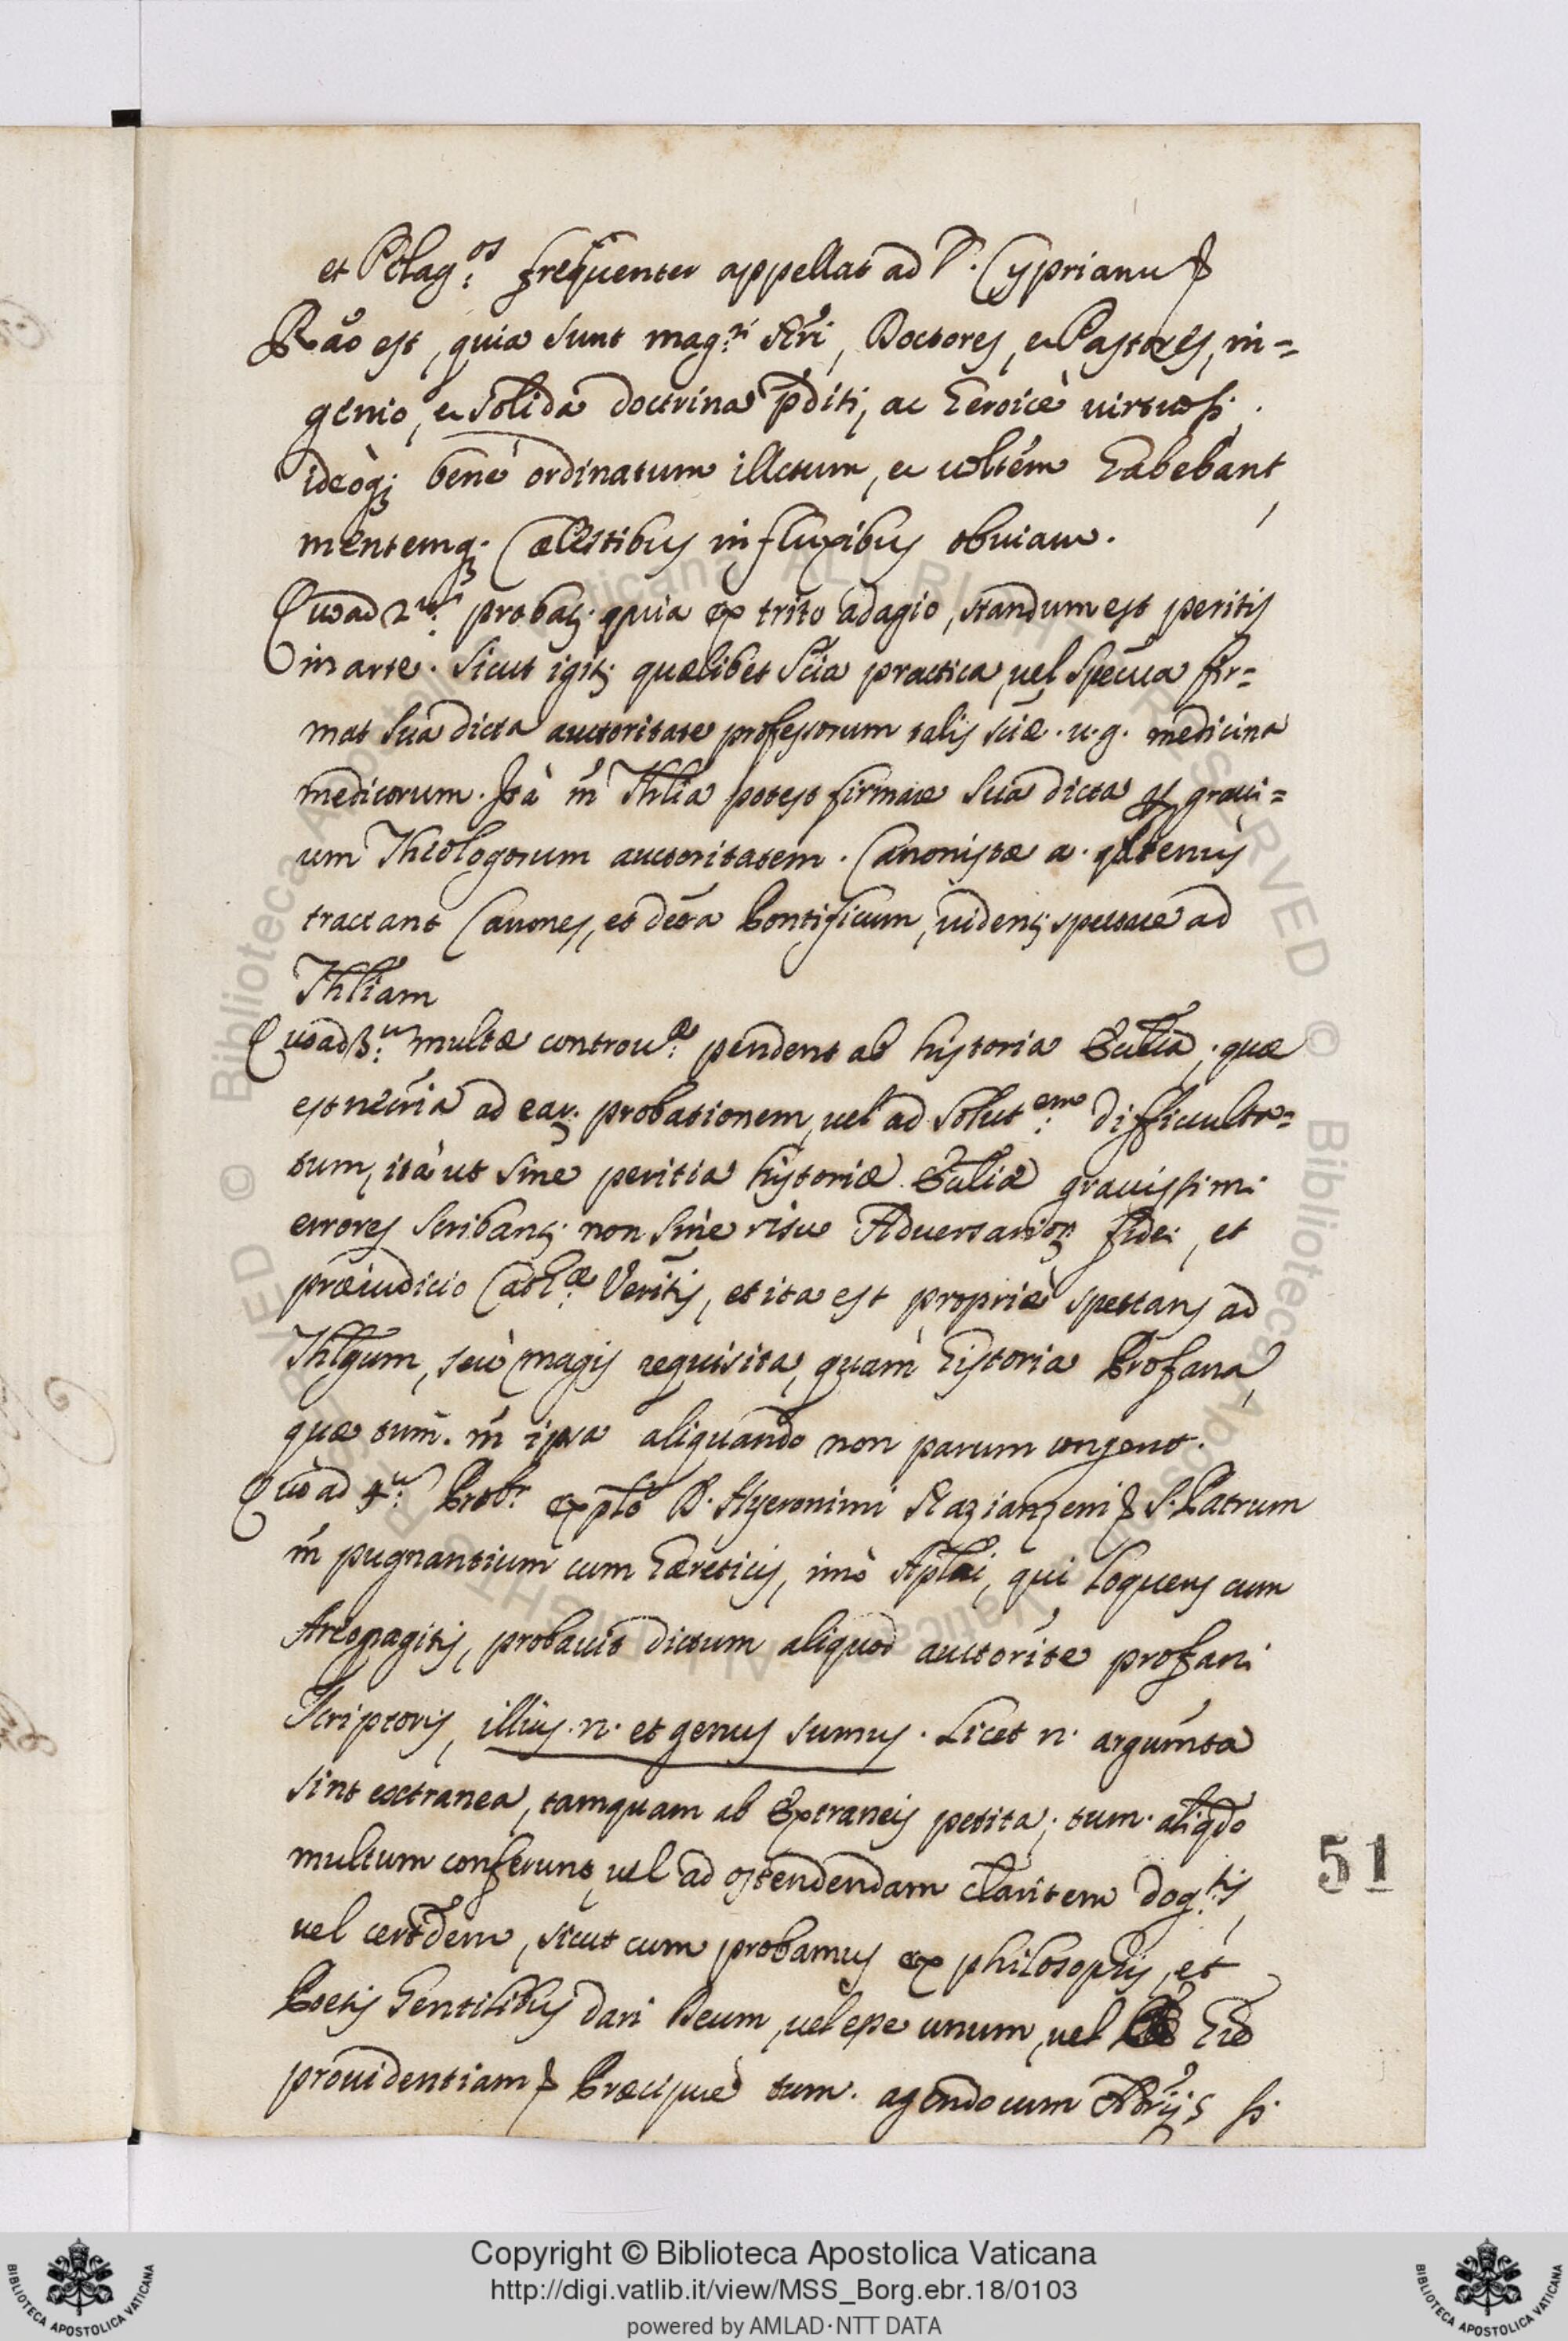 et Pelag:os frequenter appellat ad D. Cyprianu &
Rão est, quia sunt mag:ri Nri, Doctores, et Pastores, in=
genio, et solida doctrina pditi, ac heroicè virtuosi.
ideòq; benè ordinatum illectum, et volтем habebant,
mentemq; Cælestibus influxibus obviam.
Quoad 2um: probat; quia ex trito adagio, standum est peritis
in arte. Sicut igit; quælibet scia practica, vel specua fir=
mat sua dicta auctoritate professorum talis sciæ. u.g. medicina
medicorum. Ità m̃ Thlia potest firmare sua dicta per gravi=
um Theologorum auctoritatem. Canonistæ a. qatenus
tractant Canones, et decta Pontificum, vident; spectare ad
Thliam
Quoad 3:um multæ controv:æ pendent ab historia Eccla; quæ
est necria ad ear; probationem, vel ad solut:em difficulta=
tum, ità ut sine peritia historiæ Eccliæ gravissimi
errores scribant; non sine risu Adversarior; fidei, et
præiudicio Cath:æ Veritis, et ita est propriè spectans ad
Thlgum, seù magis requisita, quàm historia Profana,
quæ tum. m̃ ipsa aliquando non parum confert.
Quoad 4:um Probr explo D. Hyeronimi Nazianzeni & S. Patrum
m̃ pugnantium cum hæreticis, imò Apli, qui loquens cum
Areopagitis, probavit dictum aliquod auctorite profani
Scriptoris, illius. n. et genus sumus. Licet n. argumta
sint extranea, tamquam ab Extraneis petita; tum. aliqdo
multum conferunt, vel ad ostendendam claritem dog:tis,
vel certdem, sicut cum probamus ex philosophis, et
Poetis Gentilibus dari Deum, vel esse unum, vel hre
providentiam & Præcipuè tum. agendo cum Advrijs si
51
Copyright © Biblioteca Apostolica Vaticana
http://digi.vatlib.it/view/MSS_Borg.ebr.18/0103
powered by AMLAD·NTT DATA